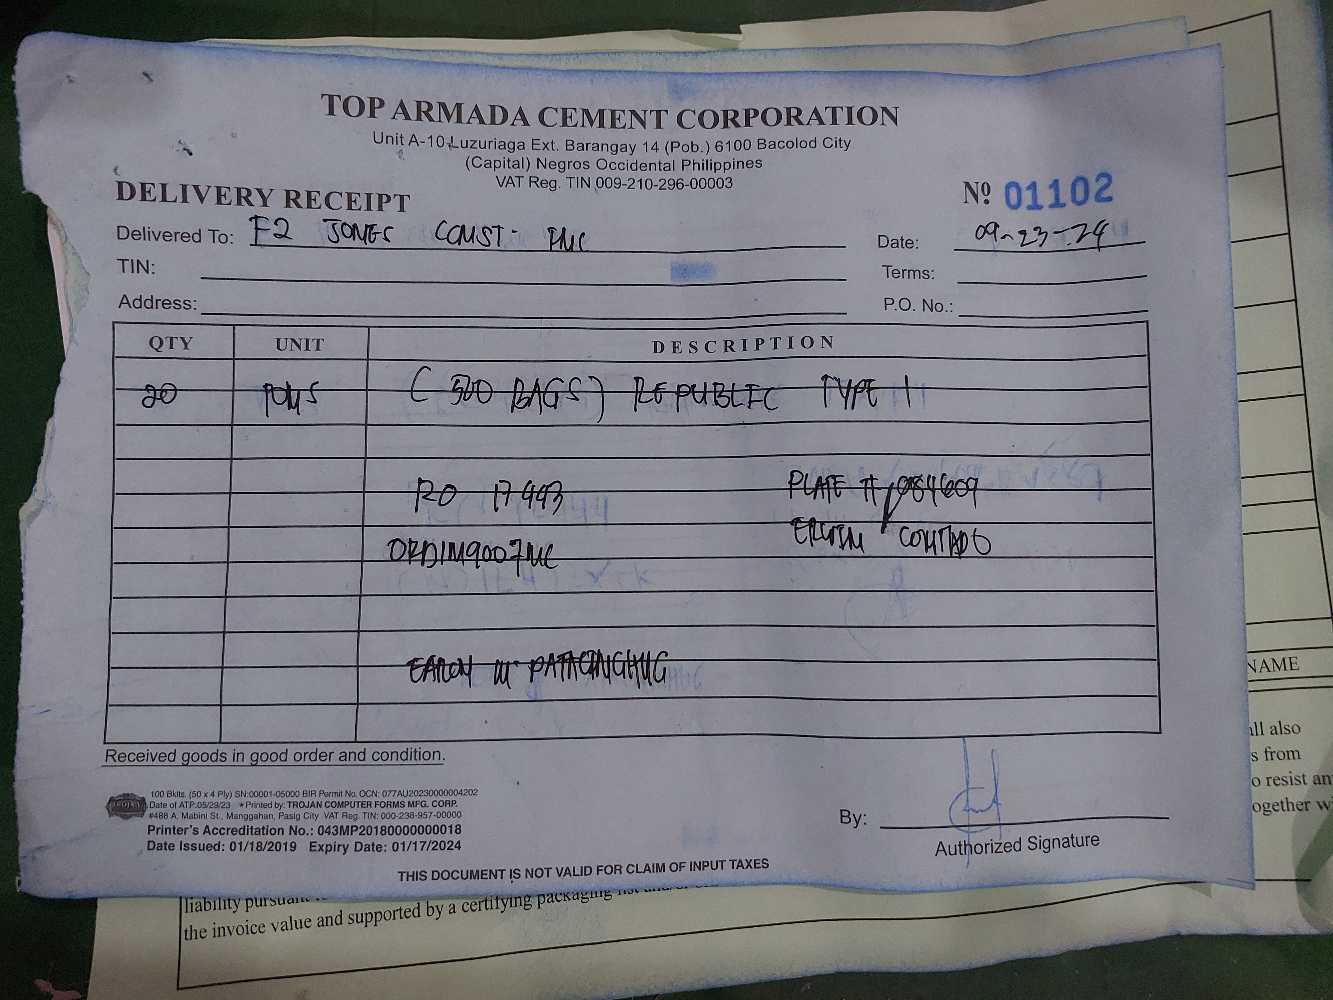 TOP ARMADA CEMENT CORPORATION
Unit A-10 Luzuriaga Ext. Barangay 14 (Pob.) 6100 Bacolod City
(Capital) Negros Occidental Philippines
VAT Reg. TIN 009-210-296-00003
DELIVERY RECEIPT
Nº 01102
Delivered To: F2 JONES CONST. INC
Date: 09-23-24
TIN:
Terms:
Address:
P.O. No.:
QTY UNIT DESCRIPTION
20 TONS (500 BAGS) REPUBLIC TYPE 1
RO 17993 PLATE #
Received goods in good order and condition.
TROJAN
100 Bklts. (50 x 4 Ply) SN:00001-05000 BIR Permit No. OCN: 077AU20230000004202
Date of ATP:05/29/23 *Printed by: TROJAN COMPUTER FORMS MFG. CORP.
#488 A. Mabini St., Manggahan, Pasig City VAT Reg. TIN: 000-238-957-00000
Printer's Accreditation No.: 043MP20180000000018
Date Issued: 01/18/2019 Expiry Date: 01/17/2024
By:
Authorized Signature
THIS DOCUMENT IS NOT VALID FOR CLAIM OF INPUT TAXES
NAME
all also
s from
o resist an
ogether w
liability
the invoice value and supported by a certifying packaging